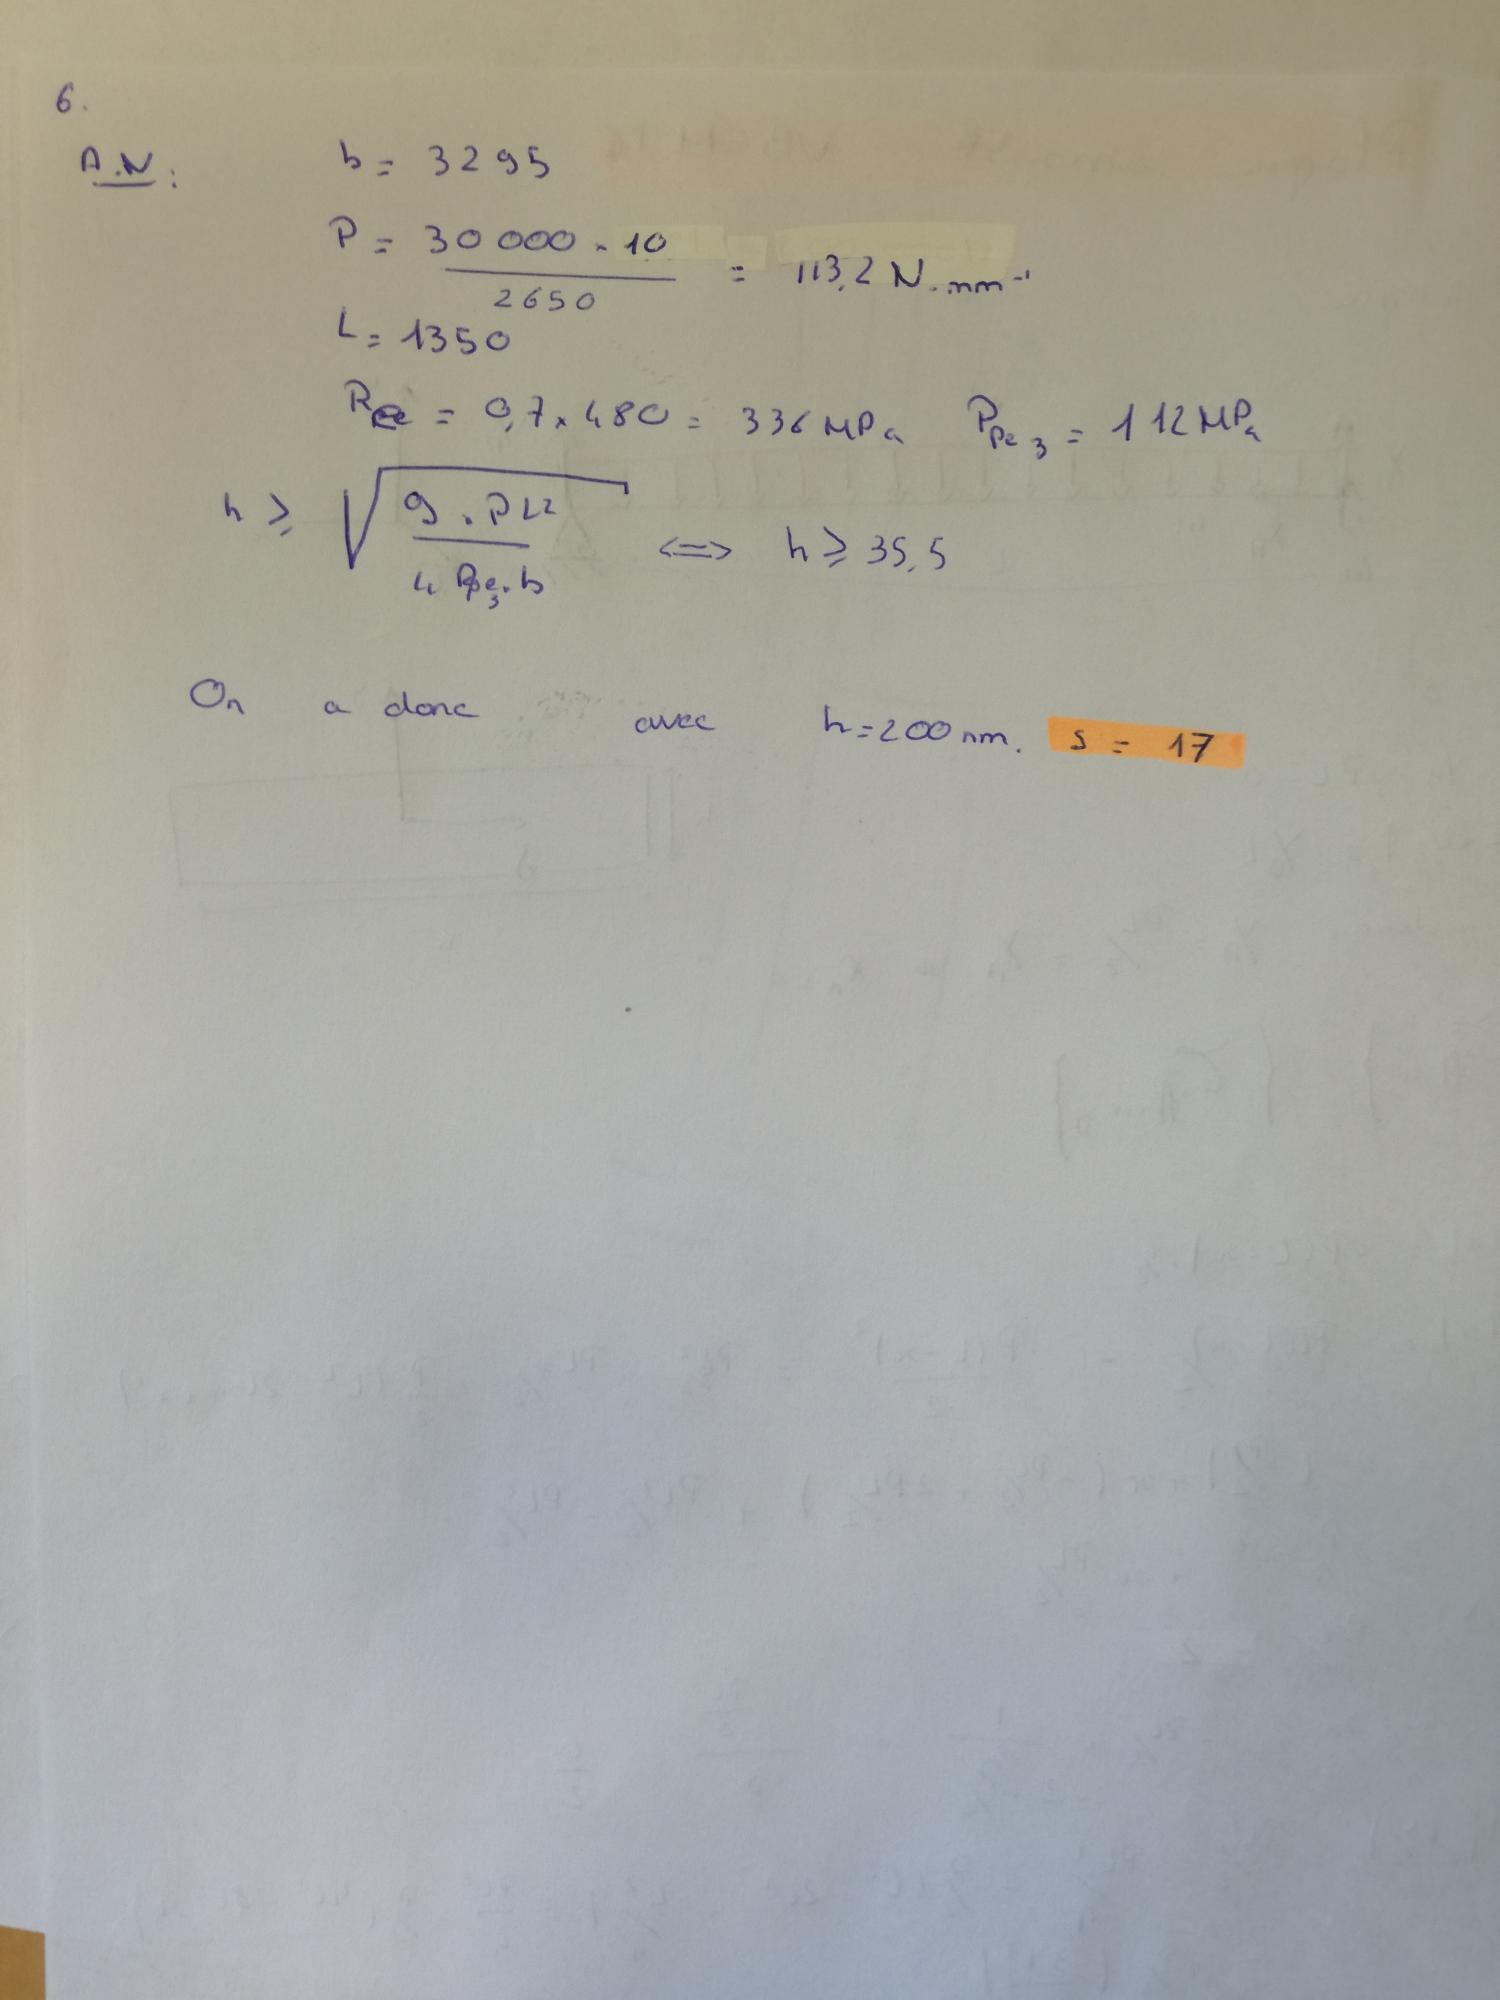 6.
A.N:
b = 3295
P = 30 000 × 10 / 2650 = 113,2 N.mm⁻¹
L = 1350
Ree = 0,7 × 480 = 336 MPa Rpe₃ = 112 MPa
h ≥ √(9.PL² / 4 Rpe₃.b) <=> h ≥ 35,5
On a donc avec h = 200 mm. s = 17